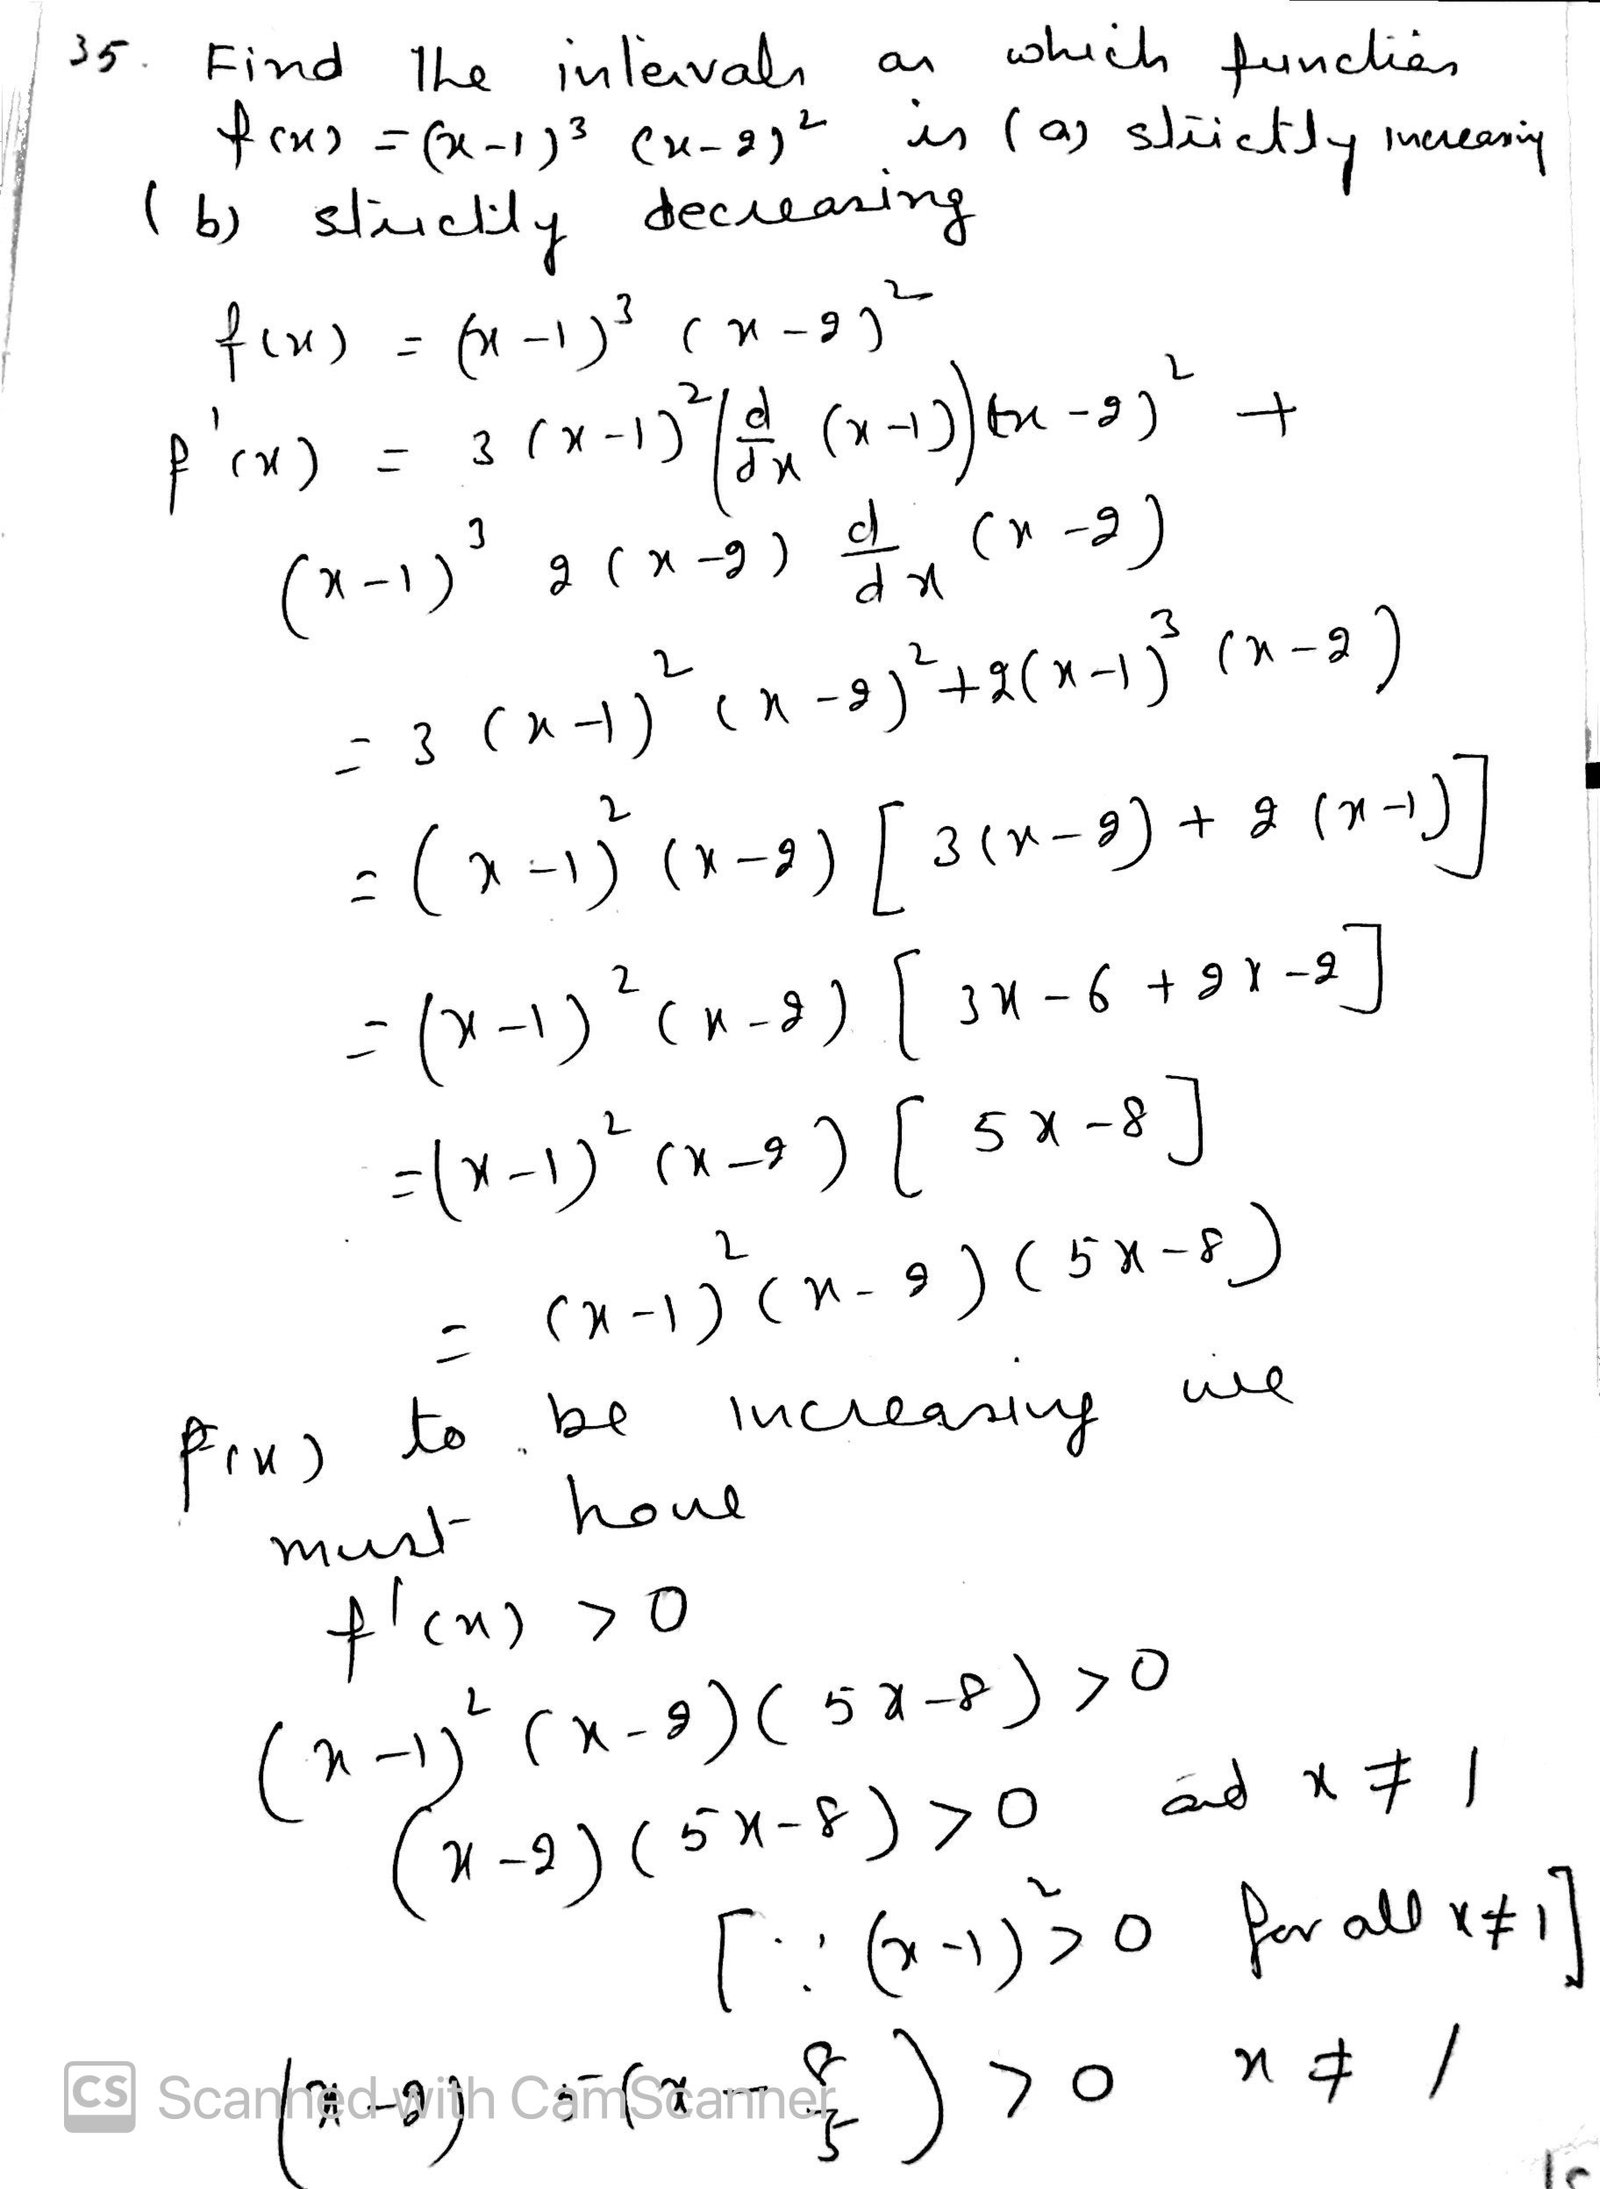 35. Find the intervals on which function
f(x) = (x-1)³ (x-2)² is (a) strictly increasing
(b) strictly decreasing
f(x) = (x-1)³ (x-2)²
f'(x) = 3(x-1)² (d/dx (x-1)) (x-2)² +
(x-1)³ 2(x-2) d/dx (x-2)
= 3(x-1)² (x-2)² + 2(x-1)³ (x-2)
= (x-1)² (x-2) [3(x-2) + 2(x-1)]
= (x-1)² (x-2) [3x-6+2x-2]
= (x-1)² (x-2) [5x-8]
= (x-1)² (x-2) (5x-8)
f(x) to be increasing we
must have
f'(x) > 0
(x-1)² (x-2) (5x-8) > 0
(x-2) (5x-8) > 0 and x ≠ 1
[∵ (x-1)² > 0 for all x ≠ 1]
(x-2) 5(x - 8/5) > 0 x ≠ 1
CS Scanned with CamScanner